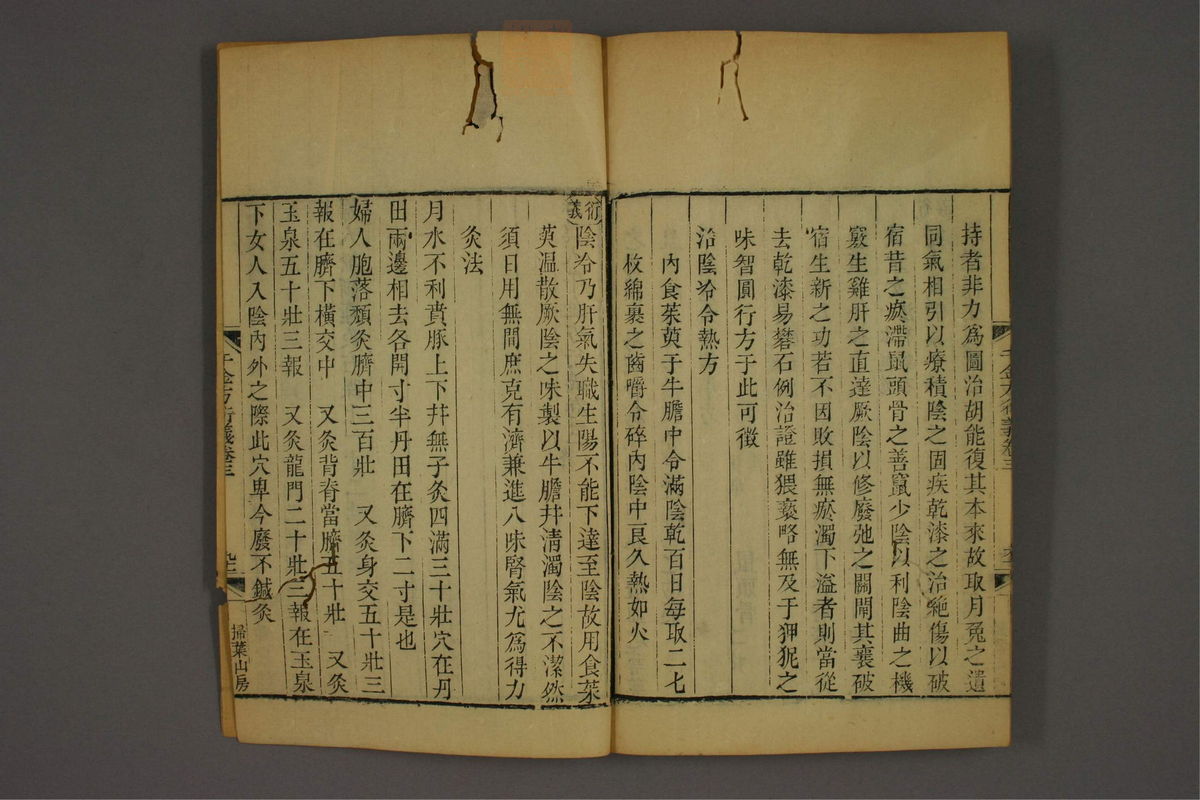 持者非力為圖治胡能復其本來故取月兔之遺
同氣相引以療積陰之固疾乾漆之治絶傷以破
宿昔之瘀滯鼠頭骨之善竄少陰以利陰曲之機
竅生雞肝之直達厥陰以修廢弛之關閘其襄破
宿生新之功若不因敗損無瘀濁下溢者則當從
去乾漆易礬石例治證雖猥褻略無及于狎狔之
味智圓行方于此可徵
治陰冷令熱方
內食茱萸于牛膽中令滿陰乾百日每取二七
枚綿裹之齒嚼令碎內陰中良久熱如火
衍義 陰冷乃肝氣失職生陽不能下達至陰故用食茱
萸温散厥陰之味製以牛膽并清濁陰之不潔然
須日用無間庶克有濟兼進八味腎氣尤為得力
灸法
月水不利賁豚上下并無子灸四滿三十壯穴在丹
田兩邊相去各開寸半丹田在臍下二寸是也
婦人胞落頹灸臍中三百壯 又灸身交五十壯三
報在臍下橫交中 又灸背脊當臍五十壯 又灸
玉泉五十壯三報 又灸龍門二十壯三報在玉泉
下女人入陰內外之際此穴卑今廢不鍼灸
千金方衍義卷三
九三
掃葉山房